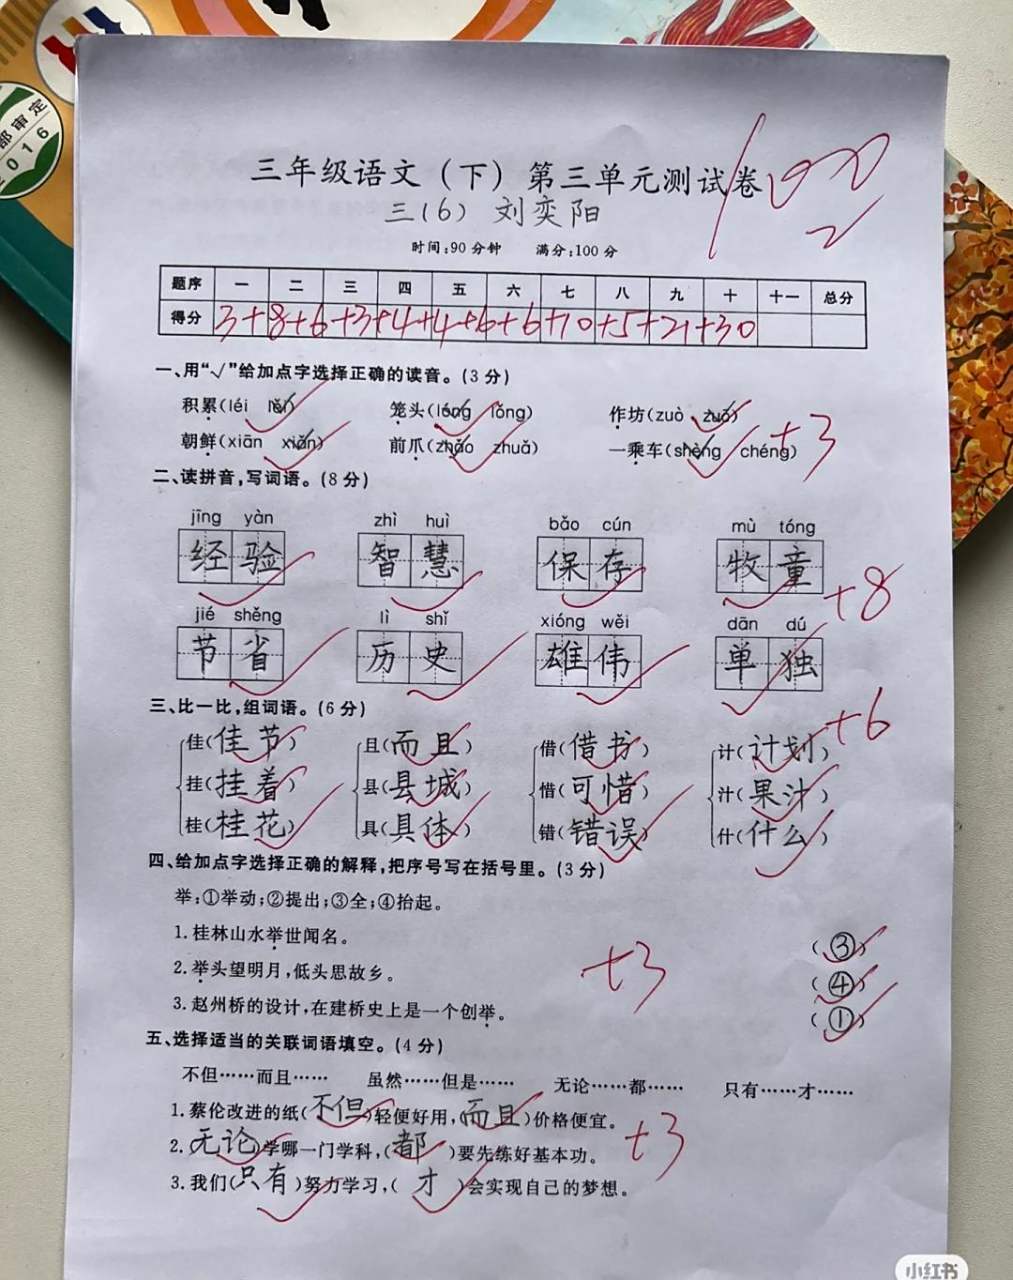 部审定
2016
三年级语文（下）第三单元测试卷
三(6) 刘奕阳
100
时间:90分钟 满分:100分
题序 一 二 三 四 五 六 七 八 九 十 十一 总分
得分 3+8+6+3+4+4+6+6+10+5+21+30
一、用“√”给加点字选择正确的读音。(3分)
积累(léi lěi) 笼头(lóng lǒng) 作坊(zuò zuō)
朝鲜(xiān xiǎn) 前爪(zhǎo zhuǎ) 一乘车(shèng chéng) +3
二、读拼音,写词语。(8分)
jīng yàn zhì huì bǎo cún mù tóng
经验 智慧 保存 牧童
+8
jié shěng lì shǐ xióng wěi dān dú
节省 历史 雄伟 单独
三、比一比,组词语。(6分)
+6
佳(佳节) 且(而且) 借(借书) 计(计划)
挂(挂着) 县(县城) 惜(可惜) 汁(果汁)
桂(桂花) 具(具体) 错(错误) 什(什么)
四、给加点字选择正确的解释,把序号写在括号里。(3分)
举:①举动;②提出;③全;④抬起。
1.桂林山水举世闻名。 (③)
2.举头望明月,低头思故乡。 (④)
+3
3.赵州桥的设计,在建桥史上是一个创举。 (①)
五、选择适当的关联词语填空。(4分)
不但……而且…… 虽然……但是…… 无论……都…… 只有……才……
1.蔡伦改进的纸(不但)轻便好用,(而且)价格便宜。
2.无论)学哪一门学科,(都)要先练好基本功。
+3
3.我们(只有)努力学习,(才)会实现自己的梦想。
小红书